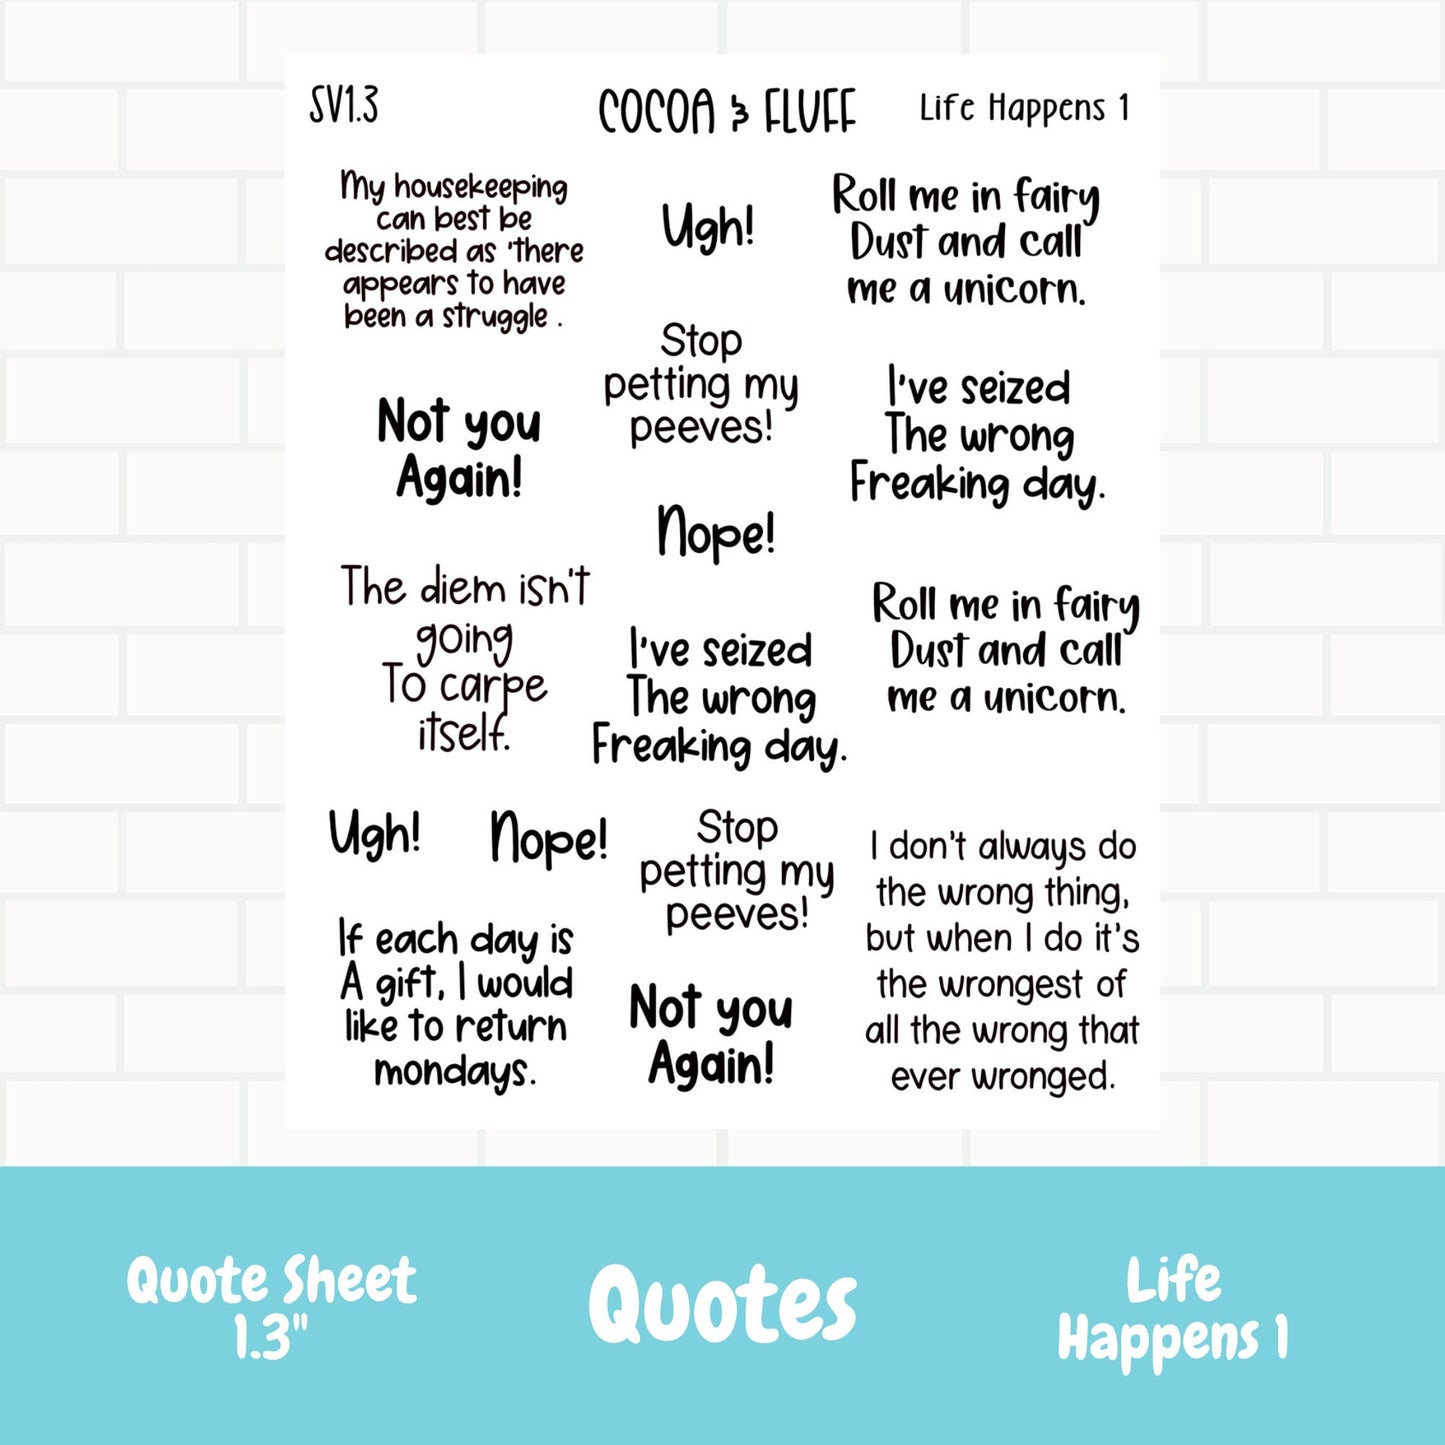 SV1.3
COCOA & FLUFF
Life Happens 1
My housekeeping
can best be
described as 'there
appears to have
been a struggle .
Ugh!
Roll me in fairy
Dust and call
me a unicorn.
Stop
petting my
peeves!
I've seized
The wrong
Freaking day.
Not you
Again!
Nope!
The diem isn't
going
To carpe
itself.
I've seized
The wrong
Freaking day.
Roll me in fairy
Dust and call
me a unicorn.
Ugh!
Nope!
Stop
petting my
peeves!
I don't always do
the wrong thing,
but when I do it's
the wrongest of
all the wrong that
ever wronged.
If each day is
A gift, I would
like to return
mondays.
Not you
Again!
Quote Sheet
1.3"
Quotes
Life
Happens 1